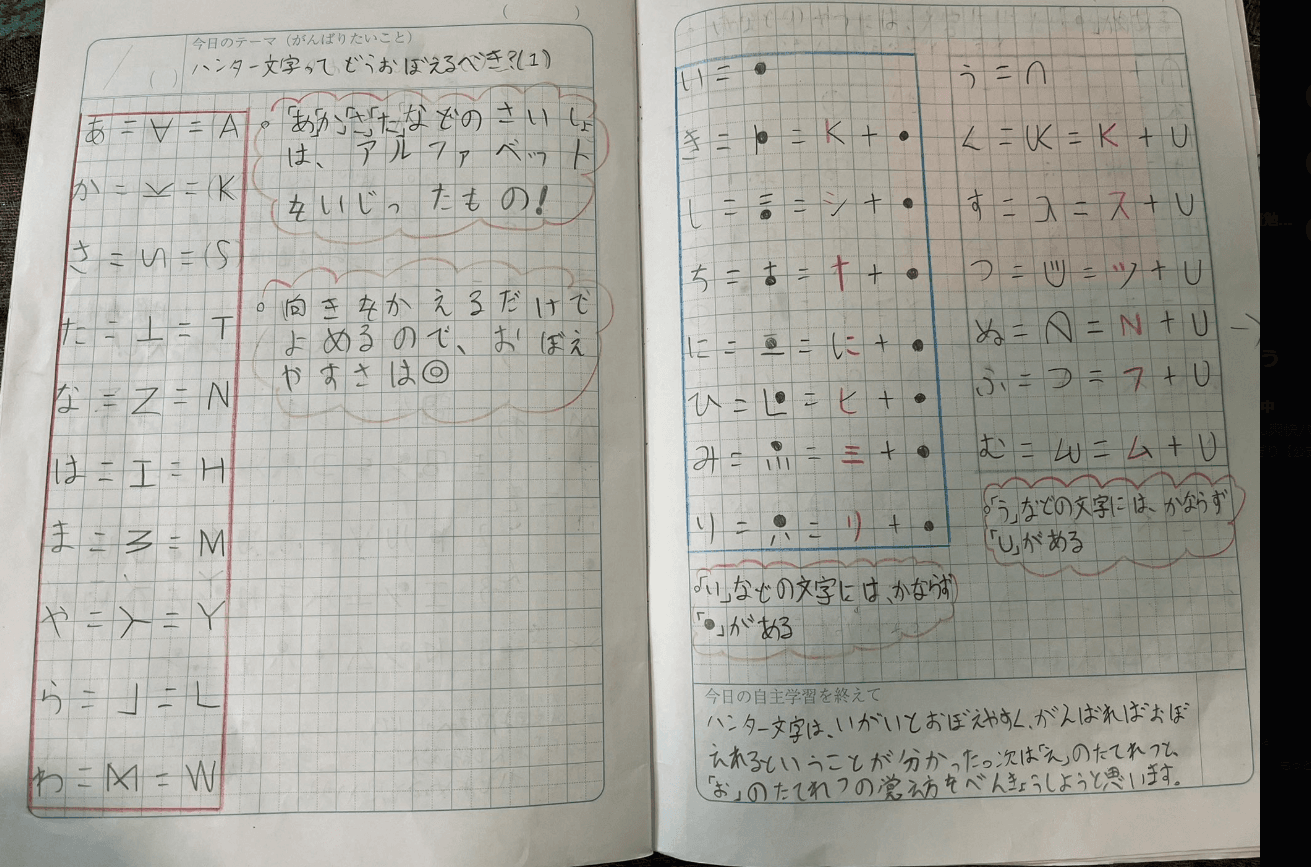 今日のテーマ（がんばりたいこと）
ハンター文字って、どうおぼえるべき？(1)
あ = ∀ = A
か = = K
さ = = S
た = ⊥ = T
な = Z = N
は = 工 = H
ま = = M
や = = Y
ら = 」 = L
わ = = W
「あ」「か」「さ」「た」などのさいしょ
は、アルファベット
をいじったもの!
向きをかえるだけで
よめるので、おぼえ
やすさは◎
い = ●
き = = K + ●
し = = シ + ●
ち = = + ●
に = = に + ●
ひ = = ヒ + ●
み = = 三 + ●
り = = り + ●
「い」などの文字には、かならず
「●」がある
う = ∩
く = = K + U
す = = ス + U
つ = = ツ + U
ぬ = = N + U
ふ = = フ + U
む = = ム + U
「う」などの文字には、かならず
「U」がある
今日の自主学習を終えて
ハンター文字は、いがいとおぼえやすく、がんばればおぼ
えれるということが分かった。次は「え」のたてれつと、
「お」のたてれつの覚え方をべんきょうしようと思います。